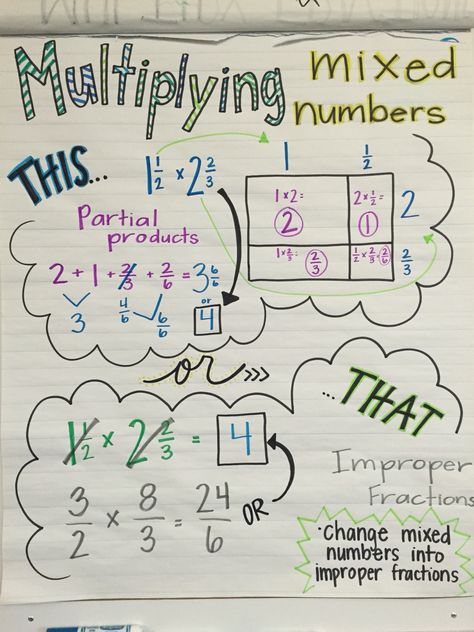 Multiplying mixed
numbers
THIS...
1 1/2 × 2 2/3
1 1/2
1×2=
2
2×1/2=
1
2
1×2/3=
2/3
1/2×2/3=2/6
2/3
Partial
products
2 + 1 + 2/3 + 2/6 = 3 6/6
3 4/6 6/6 or 4
or >>>
...THAT
1 1/2 × 2 2/3 = 4
3/2 × 8/3 = 24/6 OR
Improper
Fractions
·change mixed
numbers into
improper fractions